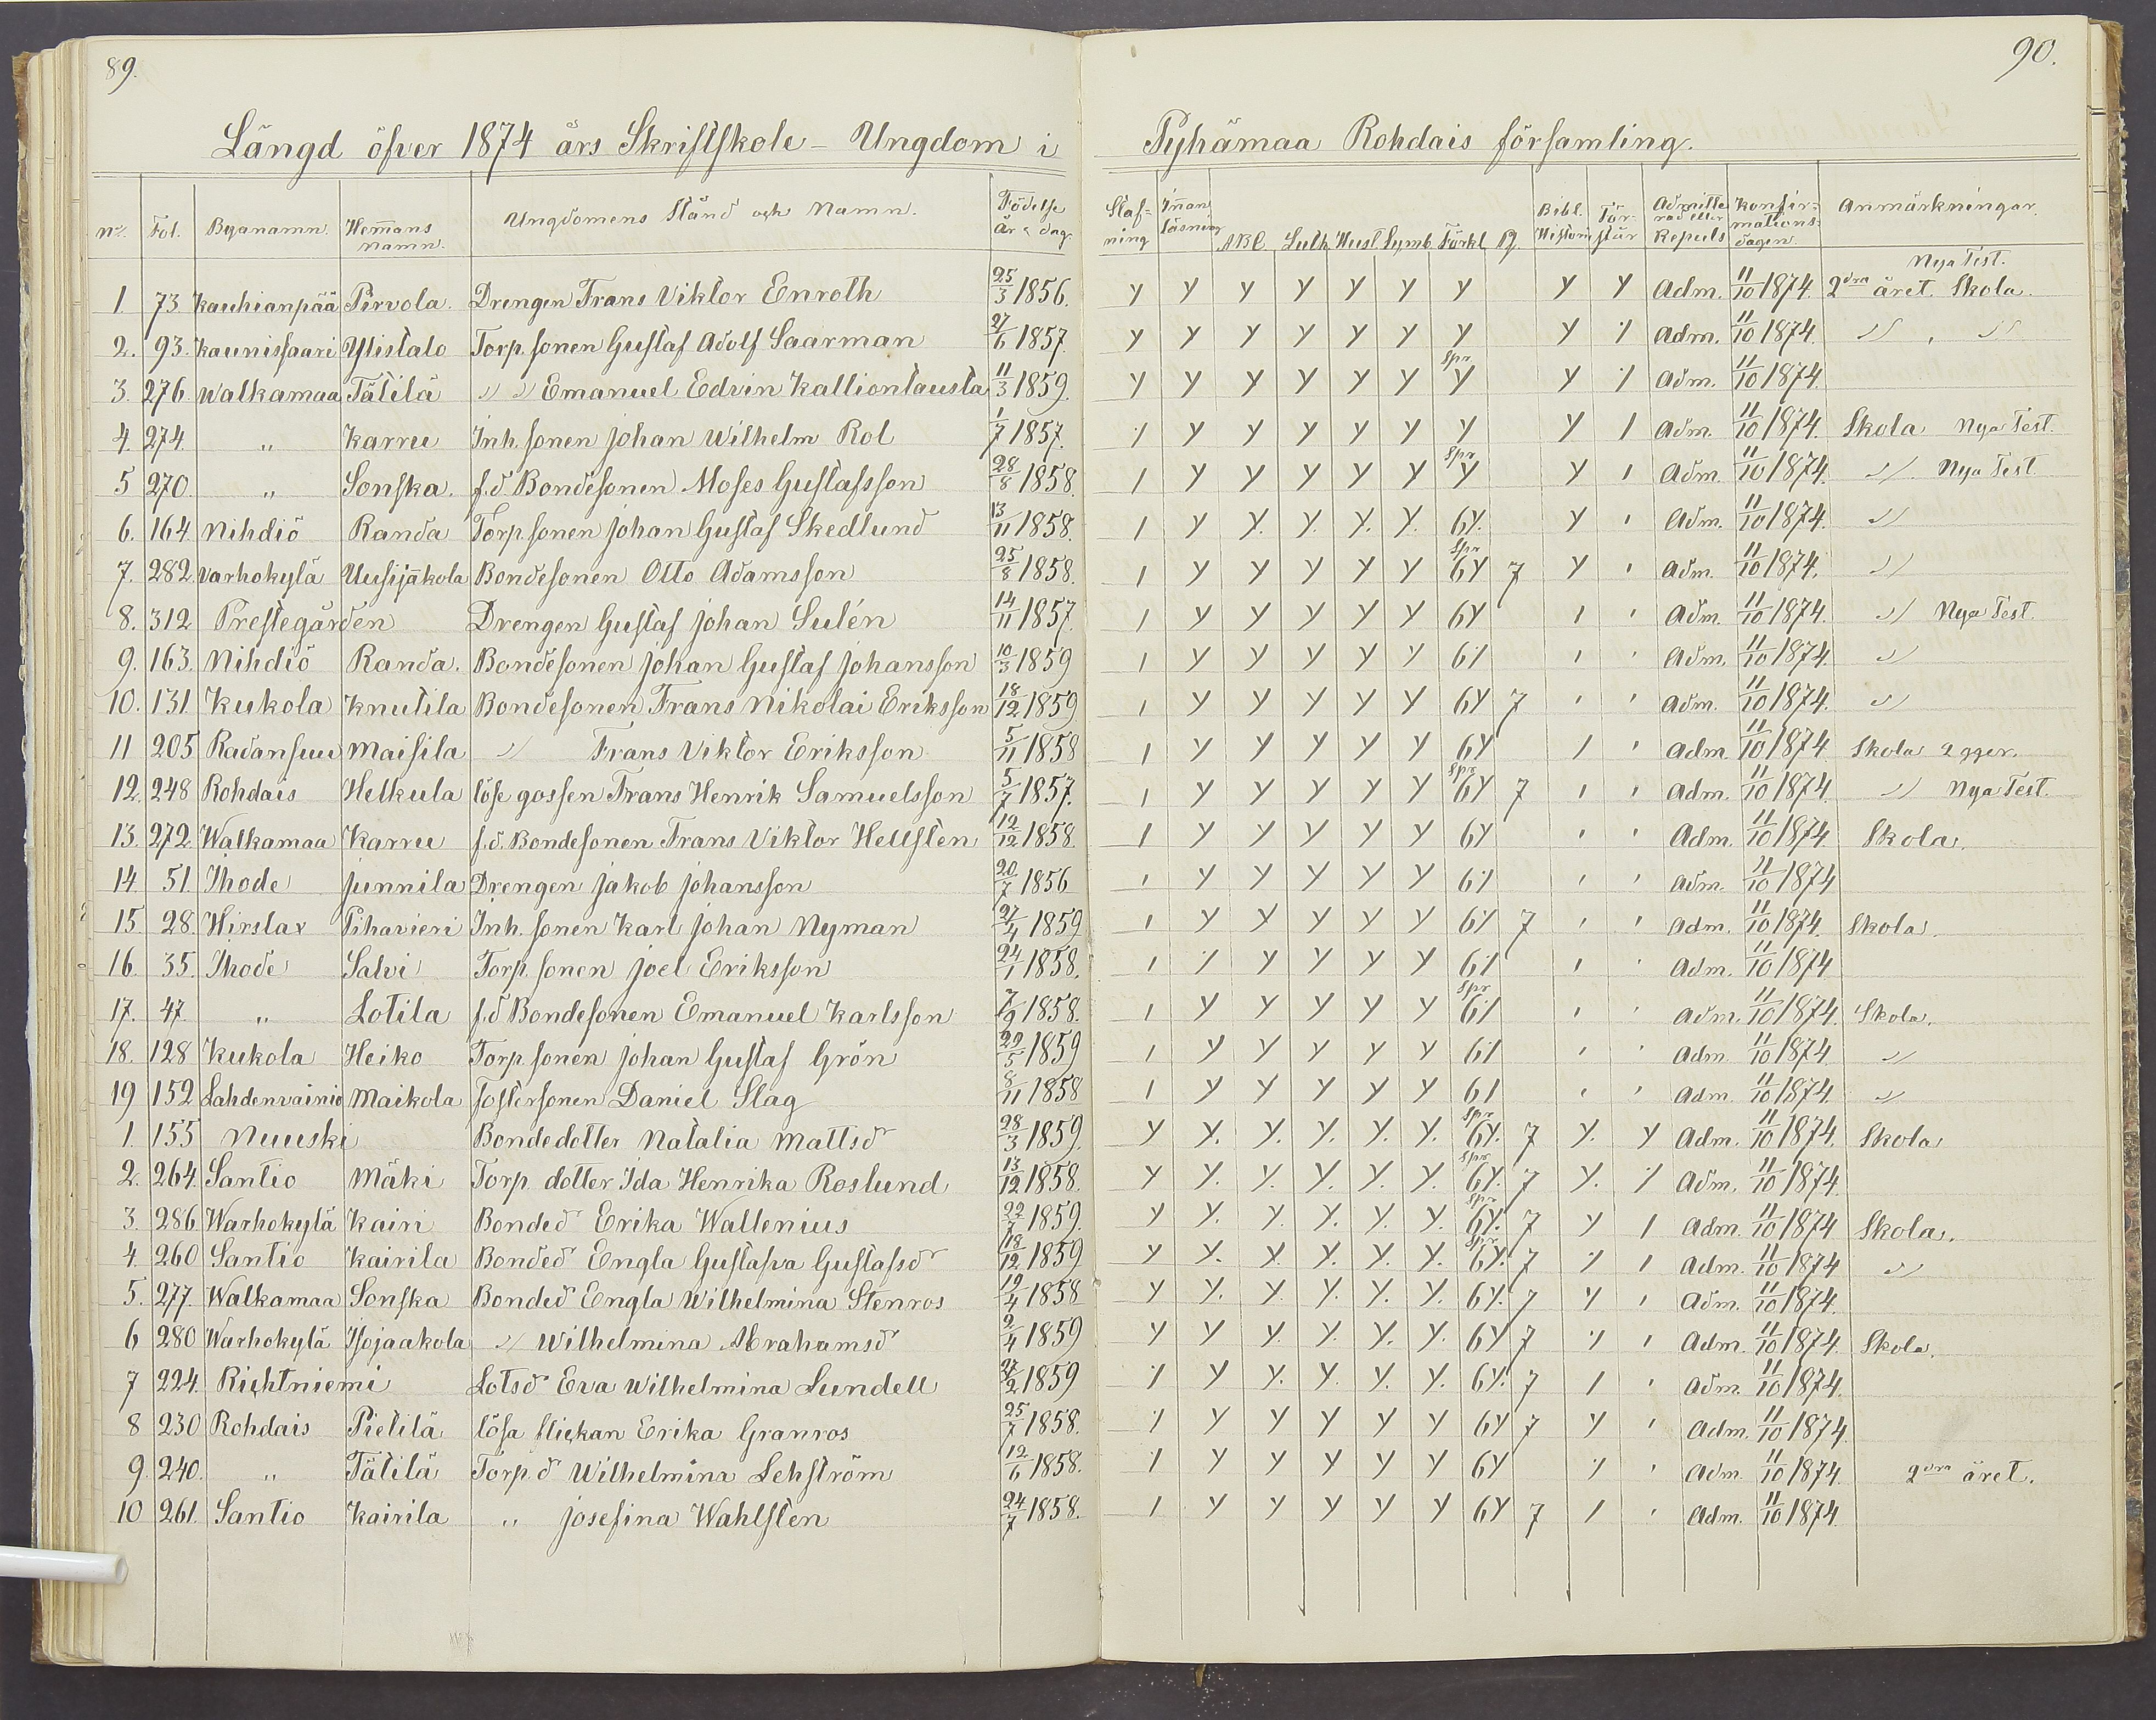 89.
90.
Längd öfver 1874 års Skriftskole-Ungdom i Pyhämaa Rohdais församling.
No. Fol. Byanamn. Hemans namn. Ungdomens Stånd och Namn. Födelse år & dag. Stafning Innanläsning ABC. Luth. Hust. Symb. Förkl. Bibl. Historia Förstår Admitterad eller Repuls Konfirmationsdagen. Anmärkningar.
1. 73. Kauhianpää Pirvola. Drengen Frans Viktor Enroth 25/3 1856. y y y y y y y y y Adm. 11/10 1874. 2dra året. Skola. Nya Test.
2. 93. Kaunissaari Ylistalo Torp. sonen Gustaf Adolf Saarman 27/6 1857. y y y y y y y y 1 Adm. 11/10 1874. " "
3. 276. Walkamaa Tätilä " " Emanuel Edvin Kalliontausta 11/3 1859. y y y y y y spr y y 1 Adm. 11/10 1874.
4. 274. " Karru Inh. sonen Johan Wilhelm Rol 1/7 1857. 1 y y y y y y y 1 Adm. 11/10 1874. Skola Nya Test.
5 270. " Sonska. f.d. Bondesonen Moses Gustafsson 28/8 1858. 1 y y y y y spr y y 1 Adm. 11/10 1874. " Nya Test
6. 164. Nihdiö Randa Torp. sonen Johan Gustaf Skedlund 13/11 1858. 1 y y. y. y. y. 6y. y 1 Adm. 11/10 1874. "
7. 282. Varhokylä Uusijakola Bondesonen Otto Adamsson 25/8 1858. 1 y y y y y spr 6y 7 y 1 Adm. 11/10 1874. "
8. 312 Prestegården Drengen Gustaf Johan Sulén 14/11 1857. 1 y y y y y 6y 1 1 Adm. 11/10 1874. " Nya Test.
9. 163. Nihdiö Randa. Bondesonen Johan Gustaf Johansson 10/3 1859 1 y y y y y 61 1 1 Adm. 11/10 1874. "
10. 131. Kukola Knutila Bondesonen Frans Nikolai Eriksson 18/12 1859 1 y y y y y 6y 7 1 1 Adm. 11/10 1874. "
11 205 Radansuu Maisila " Frans Viktor Eriksson 5/11 1858 1 y y y y y 6y 1 1 Adm 11/10 1874 Skola 2 gger.
12. 248 Rohdais Helkula löse gossen Frans Henrik Samuelsson 5/7 1857. 1 y y y y y spr 6y 7 1 1 Adm. 11/10 1874 " Nya Test.
13. 272. Walkamaa Karru f.d. Bondesonen Frans Viktor Hellsten 12/12 1858. 1 y y y y y 6y 1 1 Adm. 11/10 1874 Skola.
14 51. Ihode Junnila Drengen Jakob Johansson 20/7 1856 1 y y y y y 61 1 1 Adm. 11/10 1874
15. 28. Hirslax Pihavieri Inh. sonen Karl Johan Nyman 27/4 1859 1 y y y y y 61 7 1 1 Adm. 11/10 1874. Skola.
16. 35. Ihode Salvi Torp. sonen Joel Eriksson 24/1 1858. 1 1 y y y y 61 1 1 Adm. 11/10 1874
17. 47. " Lotila f.d Bondesonen Emanuel Karlsson 7/9 1858. 1 y y y y y spr 61 1 1 Adm. 11/10 1874. Skola.
18. 128 Kukola Heiko Torp sonen Johan Gustaf Grön 29/5 1859 1 y y y y y 61 1 1 Adm. 11/10 1874 "
19 152 Lahdenvainio Maikola Fostersonen Daniel Slag 8/11 1858 1 y y y y y 61 1 1 Adm. 11/10 1874 "
1. 155 Nuuski Bondedotter Natalia Mattsd 28/3 1859. y y. y. y. y. y. spr 6y. 7 y. y Adm. 11/10 1874. Skola
2. 264. Santio Mäki Torp. dotter Ida Henrika Roslund 13/12 1858. y y. y. y. y. y. spr 6y. 7 y. 1 Adm. 11/10 1874.
3. 286. Warhokylä Kairi Bonded Erika Wallenius 22/7 1859. y y. y. y. y. y. spr 6y. 7 y 1 Adm. 11/10 1874 Skola.
4. 260 Santio Kairila Bonded Engla Gustafva Gustafsd 18/12 1859 y y. y. y. y. y. spr 6y. 7 1 1 Adm. 11/10 1874 "
5. 277. Walkamaa Sonska Bonded Engla Wilhelmina Stenros 19/4 1858 y y. y. y. y. y. 6y. 7 y 1 Adm. 11/10 1874.
6 280 Warhokylä Isojaakola " Wilhelmina Abrahamsd 2/4 1859 y y y. y. y. y. 6y 7 1 1 Adm. 11/10 1874. Skola.
7 224. Riehtniemi Lotsd Eva Wilhelmina Lundell 27/2 1859 1 y y. y. y. y. 6y. 7 1 1 Adm. 11/10 1874.
8 230 Rohdais Pietilä lösa flickan Erika Granros 25/7 1858. 1 y y y y y 6y 7 y 1 Adm. 11/10 1874
9. 240. " Tätilä Torp. d Wilhelmina Lehström 12/6 1858. 1 y y y y y 6y 1 1 Adm. 11/10 1874. 2dra året.
10 261. Santio Kairila " Josefina Wahlsten 24/7 1858. 1 y y y y y 6y 7 1 1 Adm. 11/10 1874.